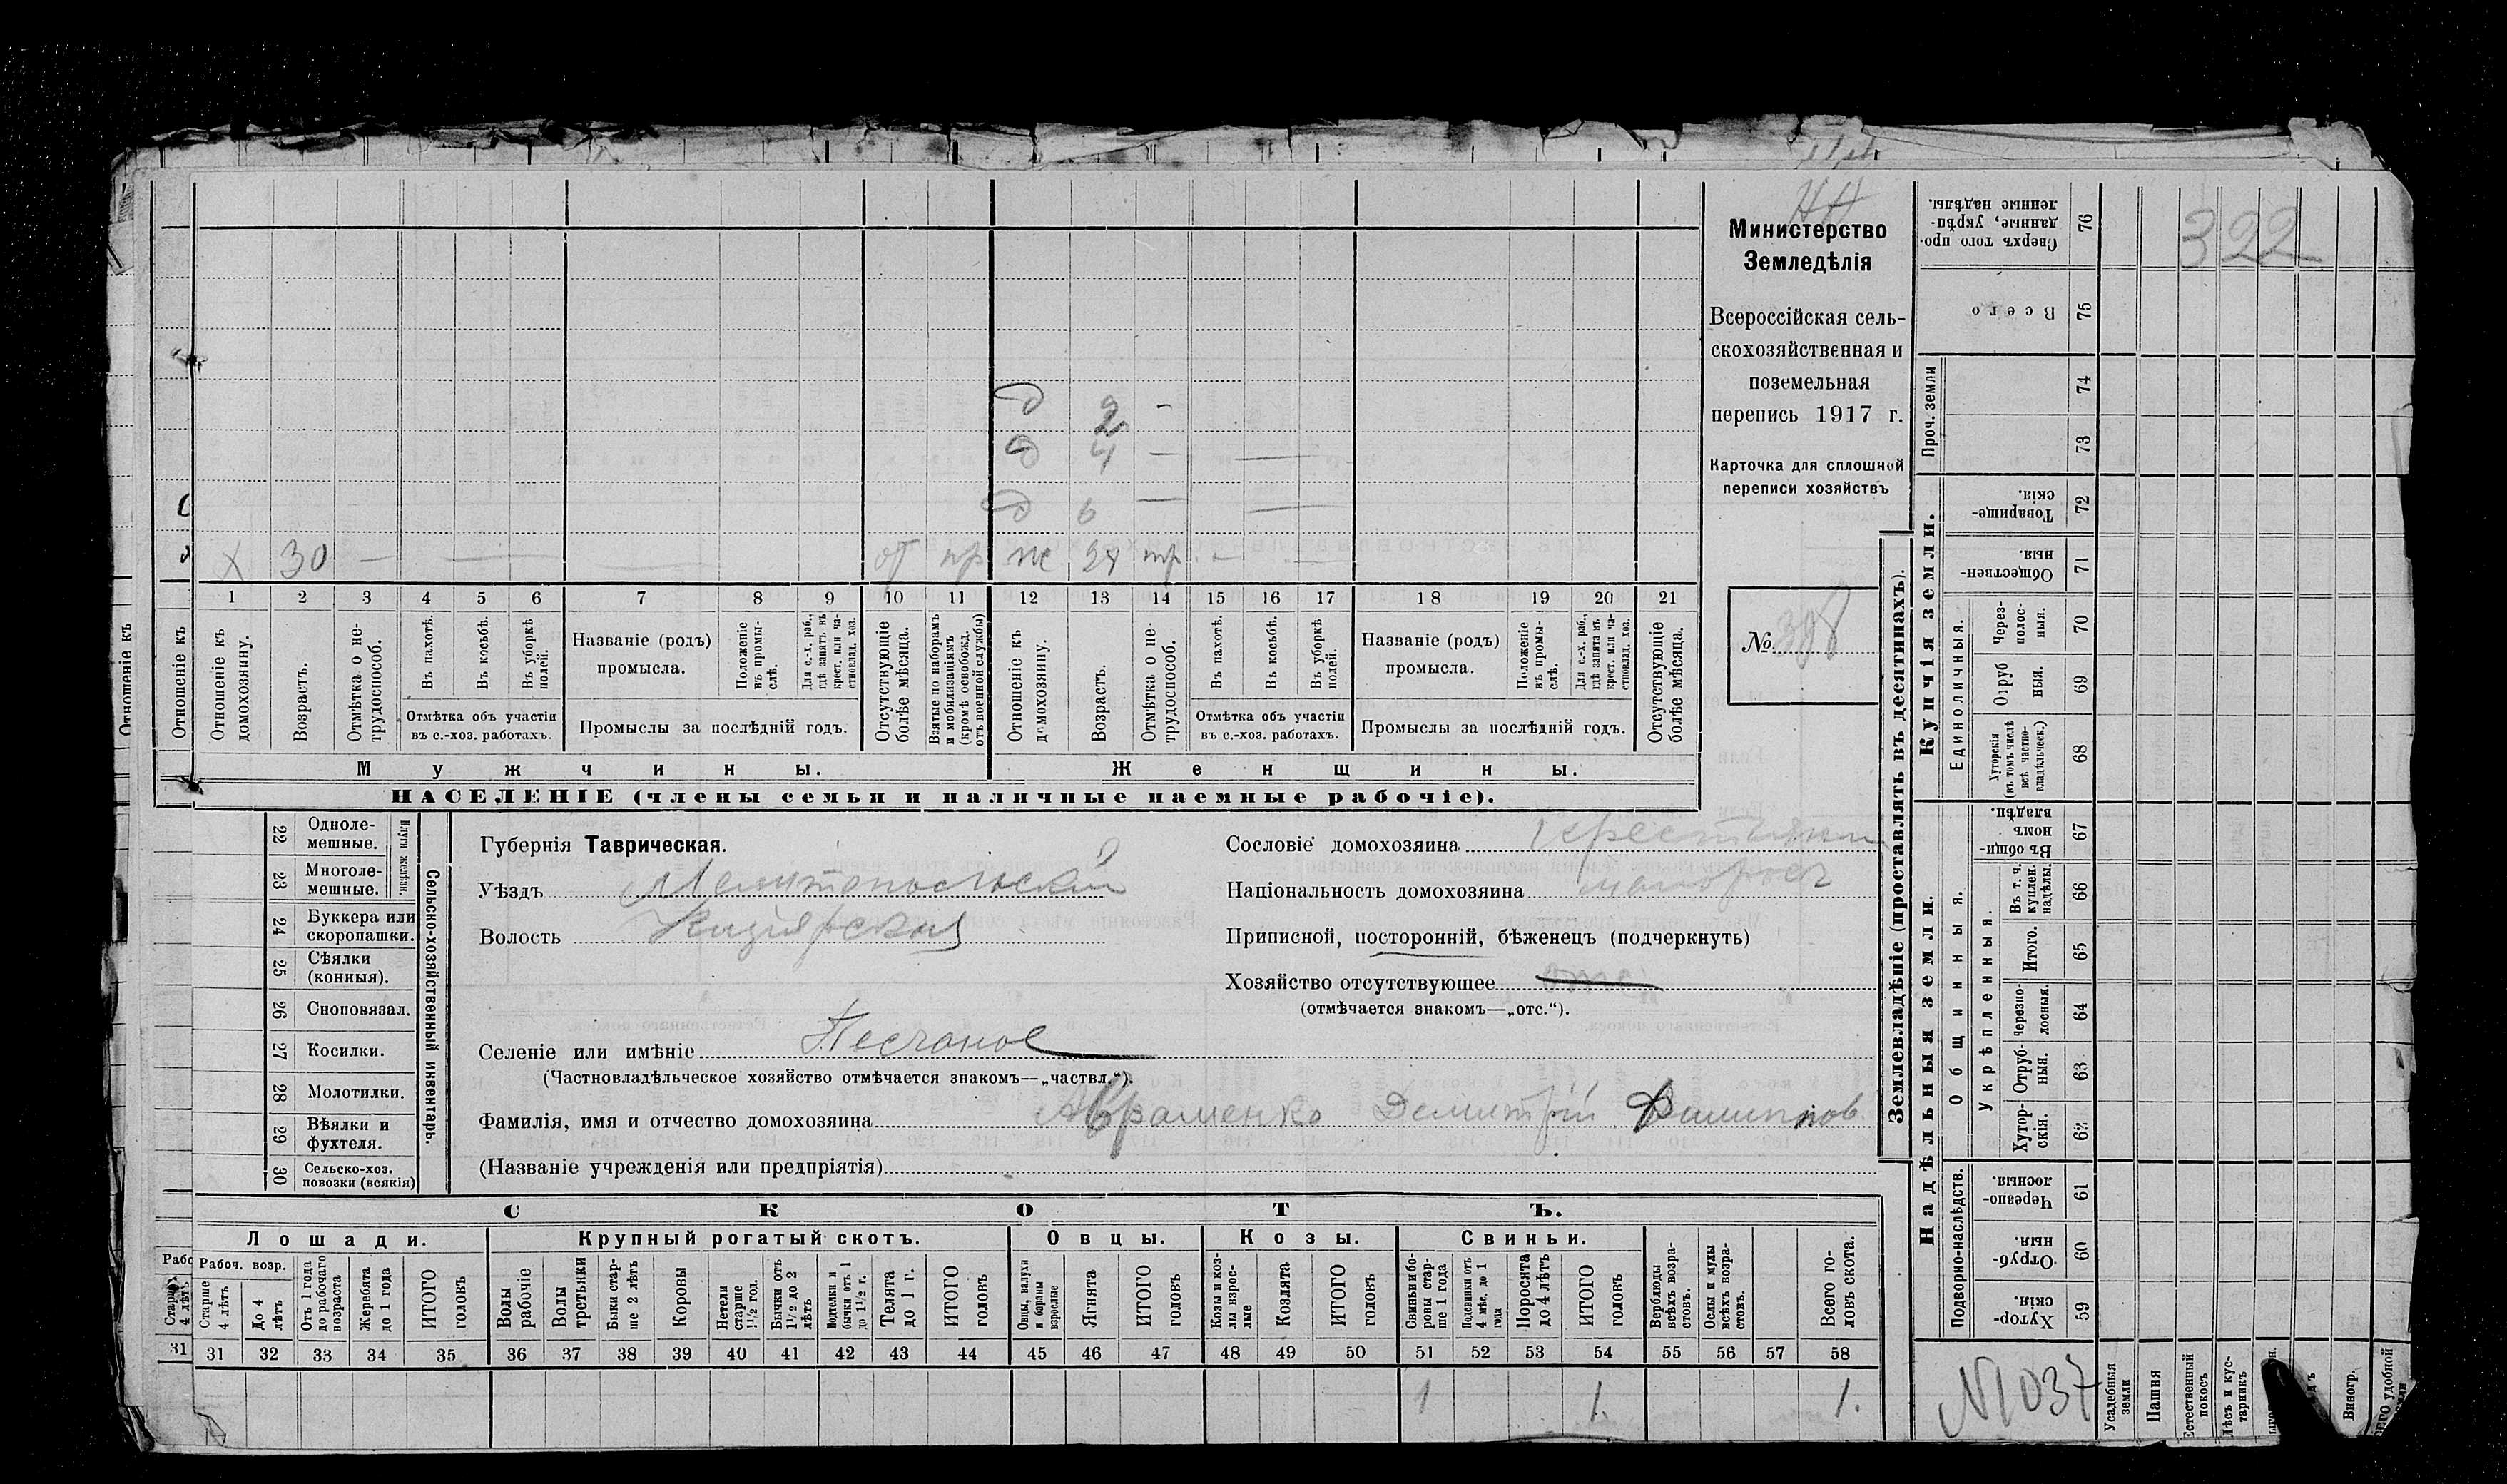 322
Министерство
Земледѣлія
Всероссійская сель-
скохозяйственная и
поземельная
перепись 1917 г.
Карточка для сплошной
переписи хозяйствъ
№ 398
д 2 —
д 4 — —
д 6 — —
х 30 — — — от пр ж 24 тр. — —
1 2 3 4 5 6 7 8 9 10 11 12 13 14 15 16 17 18 19 20 21
Отношеніе къ домохозяину.
Возрастъ.
Отмѣтка о не-трудоспособ.
Въ пахотѣ.
Въ косьбѣ.
Въ уборкѣ полей.
Отмѣтка объ участіи
въ с.-хоз. работахъ.
Названіе (родъ)
промысла.
Положеніе въ промы-слѣ.
Для с.-х. раб., гдѣ занятъ въ крест. или ча-стновлад. хоз.
Промыслы за послѣдній годъ.
Отсутствующіе болѣе мѣсяца.
Взятые по наборамъ и мобилизаціямъ (кромѣ освобожд. отъ военной службы)
Отношеніе къ домохозяину.
Возрастъ.
Отмѣтка о не-трудоспособ.
Въ пахотѣ.
Въ косьбѣ.
Въ уборкѣ полей.
Отмѣтка объ участіи
въ с.-хоз. работахъ.
Названіе (родъ)
промысла.
Положеніе въ промы-слѣ.
Для с.-х. раб., гдѣ занята въ крест. или ча-стновлад. хоз.
Промыслы за послѣдній годъ.
Отсутствующіе болѣе мѣсяца.
Мужчины. Женщины.
НАСЕЛЕНІЕ (члены семьи и наличные наемные рабочіе).
22 Одноле-мешные.
23 Многоле-мешные.
Плуги желѣзн.
24 Буккера или скоропашки.
25 Сѣялки (конныя).
26 Сноповязал.
27 Косилки.
28 Молотилки.
29 Вѣялки и фухтеля.
30 Сельско-хоз. повозки (всякія)
Сельско-хозяйственный инвентарь.
Губернія Таврическая.
Уѣздъ Мелитопольскій
Волость Кизіярская
Селеніе или имѣніе Песчаное
(Частновладѣльческое хозяйство отмѣчается знакомъ—„частвл.“).
Сословіе домохозяина крестьянин
Національность домохозяина малоросъ
Приписной, посторонній, бѣженецъ (подчеркнуть)
Хозяйство отсутствующее отс
(отмѣчается знакомъ—„отс.“).
Фамилія, имя и отчество домохозяина Авраменко Демитрій Филиппов
(Названіе учрежденія или предпріятія)
СКОТЪ.
Лошади. Крупный рогатый скотъ. Овцы. Козы. Свиньи.
Рабоч. возр.
Старше 4 лѣтъ
До 4 лѣтъ
Отъ 1 года до рабочаго возраста
Жеребята до 1 года
ИТОГО головъ
Волы рабочіе
Волы третьяки
Быки стар-ше 2 лѣтъ
Коровы
Нетели старше 1½ год.
Бычки отъ 1½ до 2 лѣтъ
Подтелки и бычки отъ 1 до 1½ г.
Телята до 1 г.
ИТОГО головъ
Овцы, валухи и бараны взрослые
Ягнята
ИТОГО головъ
Козы и коз-лы взрос-лые
Козлята
ИТОГО головъ
Свиньи и бо-ровы стар-ше 1 года
Подсвинки отъ 4 мѣс. до 1 года
Поросята до 4 лѣтъ
ИТОГО головъ
Верблюды всѣхъ возра-стовъ.
Ослы и мулы всѣхъ возра-стовъ.
Всего го-ловъ скота.
31 32 33 34 35 36 37 38 39 40 41 42 43 44 45 46 47 48 49 50 51 52 53 54 55 56 57 58
1 1. 1.
Землевладѣніе (проставлять въ десятинахъ).
Надѣльныя земли. Купчія земли.
Подворно-наслѣдств.
Общинныя.
Укрѣпленныя.
Единоличныя.
Проч. земли
76 Сверхъ того про-данные, укрѣп-ленные надѣлы.
75 Всего
74
73
72 Товарище-скія.
71 Обществен-ныя.
70 Через-полос-ныя.
69 Отруб ныя.
68 Хуторскія (въ томъ числѣ всѣ частно-владѣльческ.)
67 Въ общи-номъ владѣн.
66 Въ т. ч. куплен. надѣлы.
65 Итого.
64 Черезпо-лосныя.
63 Отруб-ныя.
62 Хутор-скія.
61 Черезпо-лосныя.
60 Отруб-ныя.
59 Хутор-скія.
N1037
Усадебныя земли
Пашня
Естественный покосъ
Лѣсъ и кус-тарникъ
Виногр.